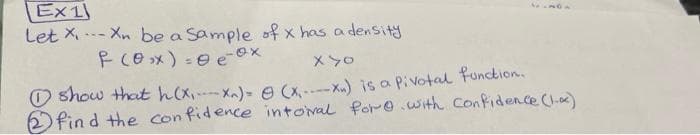 Ex 1
Let X₁ --- Xn be a sample of x has a density
f (θ,x) = θ e^-θx    x>0
① show that h(X₁---Xn)= θ (X₁---Xn) is a pivotal function.
② find the confidence intoival for θ .with confidence (1-α)